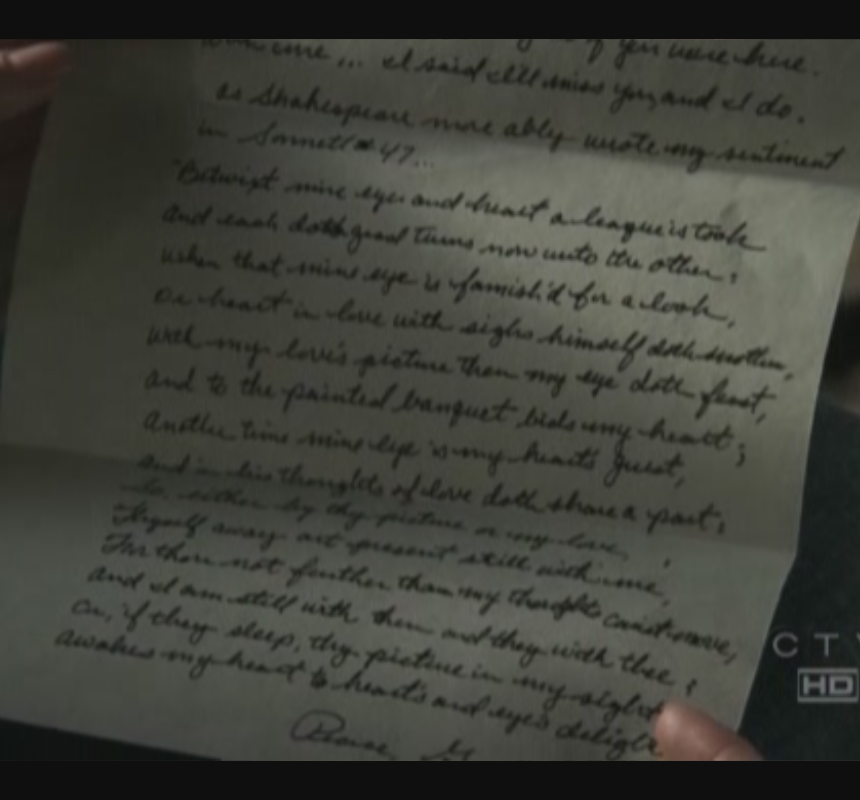 if you were here.
... I said I'll miss you, and I do.
as Shakespeare more ably wrote my sentiment
in Sonnet #47...
"Betwixt mine eyes and heart a league is took
and each doth good turns now unto the other:
when that mine eye is famish'd for a look,
or heart in love with sighs himself doth smother,
with my love's picture then my eye doth feast,
and to the painted banquet bids my heart;
another time mine eye is my heart's guest,
and in his thoughts of love doth share a part:
so, either by thy picture or my love,
Thyself away art present still with me,
For thou not further than my thoughts canst move,
and I am still with them and they with thee;
or, if they sleep, thy picture in my sight
awakes my heart to heart's and eye's delight
CTV
HD